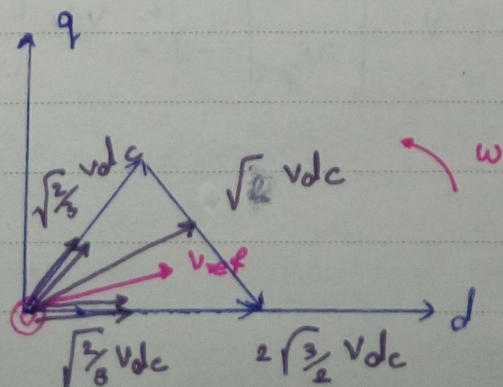 q
√2/3 vdc
√2 vdc
ω
vref
d
√2/3 vdc
2√3/2 vdc